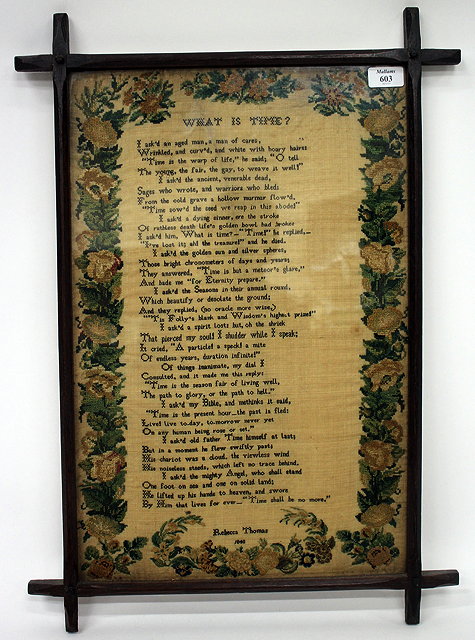 Mallams
603
WHAT IS TIME?
I ask'd an aged man, a man of cares,
Wrinkled, and curv'd, and white with hoary hairs:
"Time is the warp of life," he said; "O tell
The young, the fair, the gay, to weave it well!"
I ask'd the ancient, venerable dead,
Sages who wrote, and warriors who bled:
From the cold grave a hollow murmur flow'd,
"Time sow'd the seed we reap in this abode!"
I ask'd a dying sinner, ere the stroke
Of ruthless death life's golden bowl had broke:
I ask'd him, What is time?—"Time!" he replied,—
"I've lost it; ah! the treasure!" and he died.
I ask'd the golden sun and silver spheres,
Those bright chronometers of days and years;
They answered, "Time is but a meteor's glare,"
And bade me "for Eternity prepare."
I ask'd the Seasons in their annual round,
Which beautify or desolate the ground;
And they replied, (no oracle more wise,)
"Tis Folly's blank and Wisdom's highest prize!"
I ask'd a spirit lost: but, oh the shriek
That pierced my soul! I shudder while I speak;
It cried, "A particle! a speck! a mite
Of endless years, duration infinite!"
Of things inanimate, my dial I
Consulted, and it made me this reply:
"Time is the season fair of living well,
The path to glory, or the path to hell."
I ask'd my Bible, and methinks it said,
"Time is the present hour—the past is fled:
Live! live to-day, to-morrow never yet
On any human being rose or set."
I ask'd old father Time himself at last;
But in a moment he flew swiftly past;
His chariot was a cloud, the viewless wind
His noiseless steeds, which left no trace behind.
I ask'd the mighty Angel, who shall stand
One foot on sea and one on solid land;
He lifted up his hands to heaven, and swore
By Him that lives for ever—"Time shall be no more,"
Rebecca Thomas